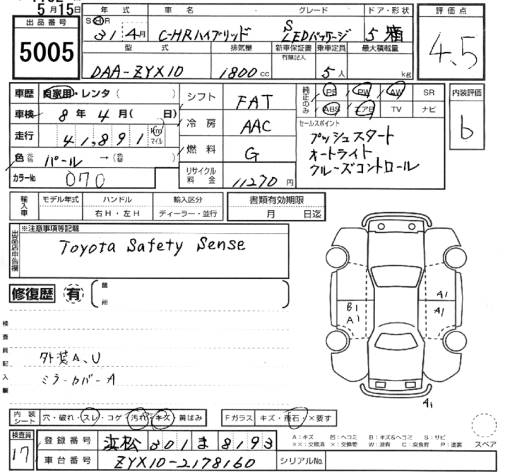 5月15日
出品番号
5005
年式 車名 グレード ドア・形状 評価点
S・H 31年4月 C-HRハイブリッド S LEDパッケージ 5 4.5
型式 排気機 新車保証書 乗車定員 最大積載量
有(記録簿)
DAA-ZYX10 1800cc 5人 kg
車歴 自家用・レンタ( )
シフト FAT
純正のみ PS PW AW SR
ABS エアB TV ナビ
内装評価 b
車検 8年4月( 日)
冷房 AAC
セールスポイント
プッシュスタート
オートライト
クルーズコントロール
走行 41,891 Km マイル
燃料 G
色 パール →( )
カラーNo 070
リサイクル料金 11270円
輸入車 モデル年式 ハンドル 輸入区分 書類有効期限
右H・左H ディーラー・並行 月 日迄
※注意事項等記載
Toyota Safety Sense
修復歴 有 箇所
検査員記入欄
外装A、U
ミラーカバーA
B1
A1
A1
A1
A1
内装シート 穴・破れ・スレ・コゲ・汚れ・キズ・黄ばみ
Fガラス キズ・飛石・×要す
A:キズ U:ヘコミ B:キズ&ヘコミ S:サビ
スペア
検査員 17
登録番号 浜松301ま8193
車台番号 ZYX10-2178160 シリアルNo.